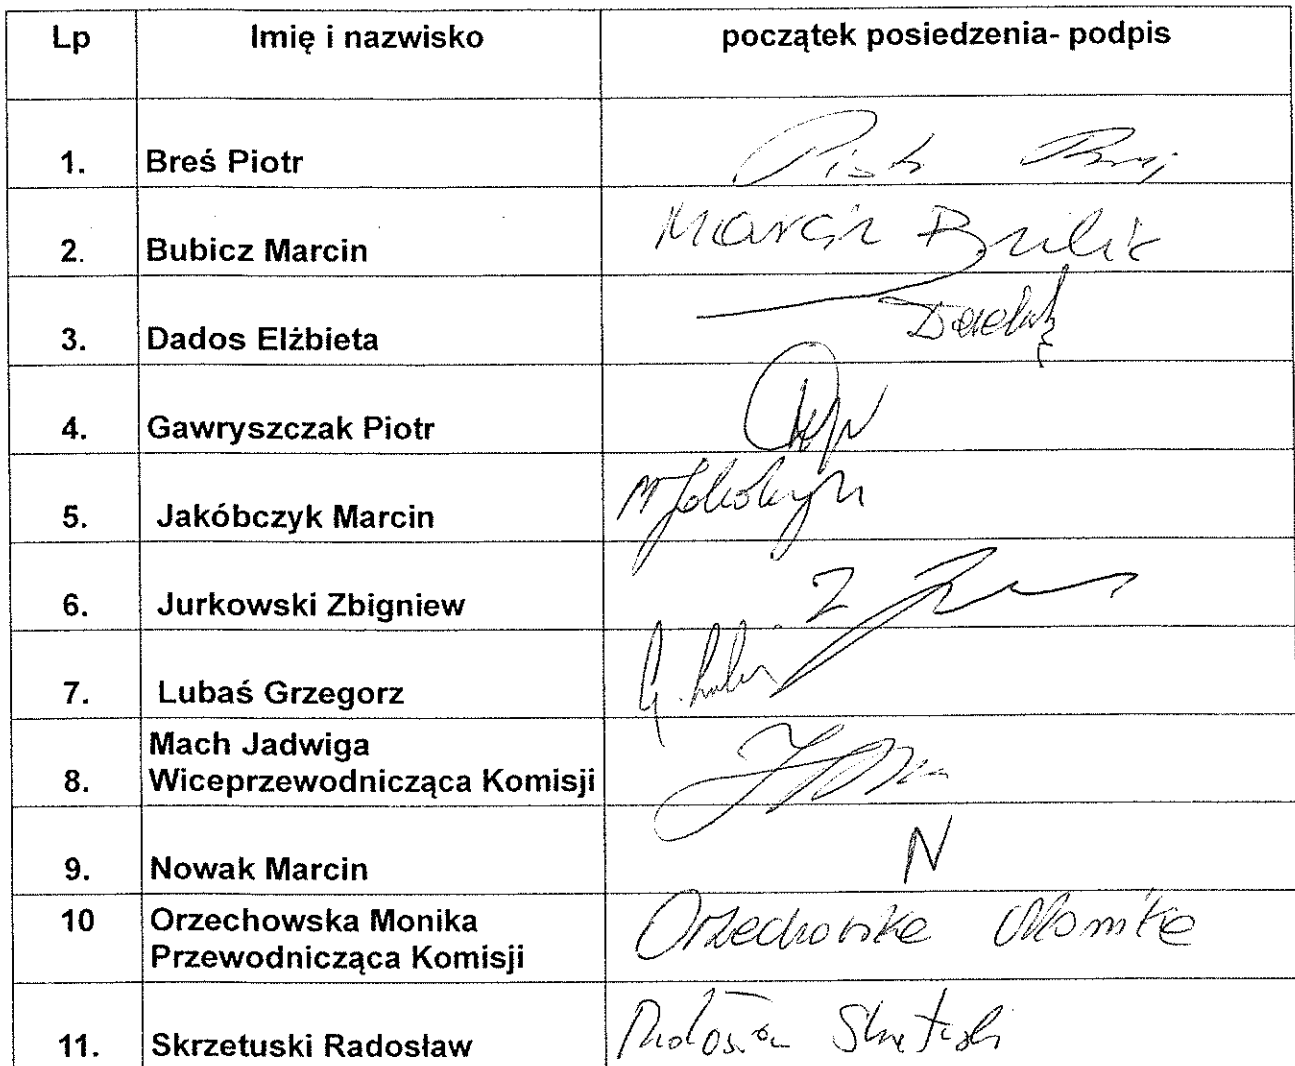 Lp Imię i nazwisko początek posiedzenia- podpis
1. Breś Piotr Piotr
2. Bubicz Marcin Marcin
3. Dados Elżbieta
4. Gawryszczak Piotr
5. Jakóbczyk Marcin
6. Jurkowski Zbigniew Z
7. Lubaś Grzegorz G.
Mach Jadwiga
8. Wiceprzewodnicząca Komisji
9. Nowak Marcin N
10 Orzechowska Monika Orzechowska Monika
Przewodnicząca Komisji
11. Skrzetuski Radosław Radosław Skrzetuski